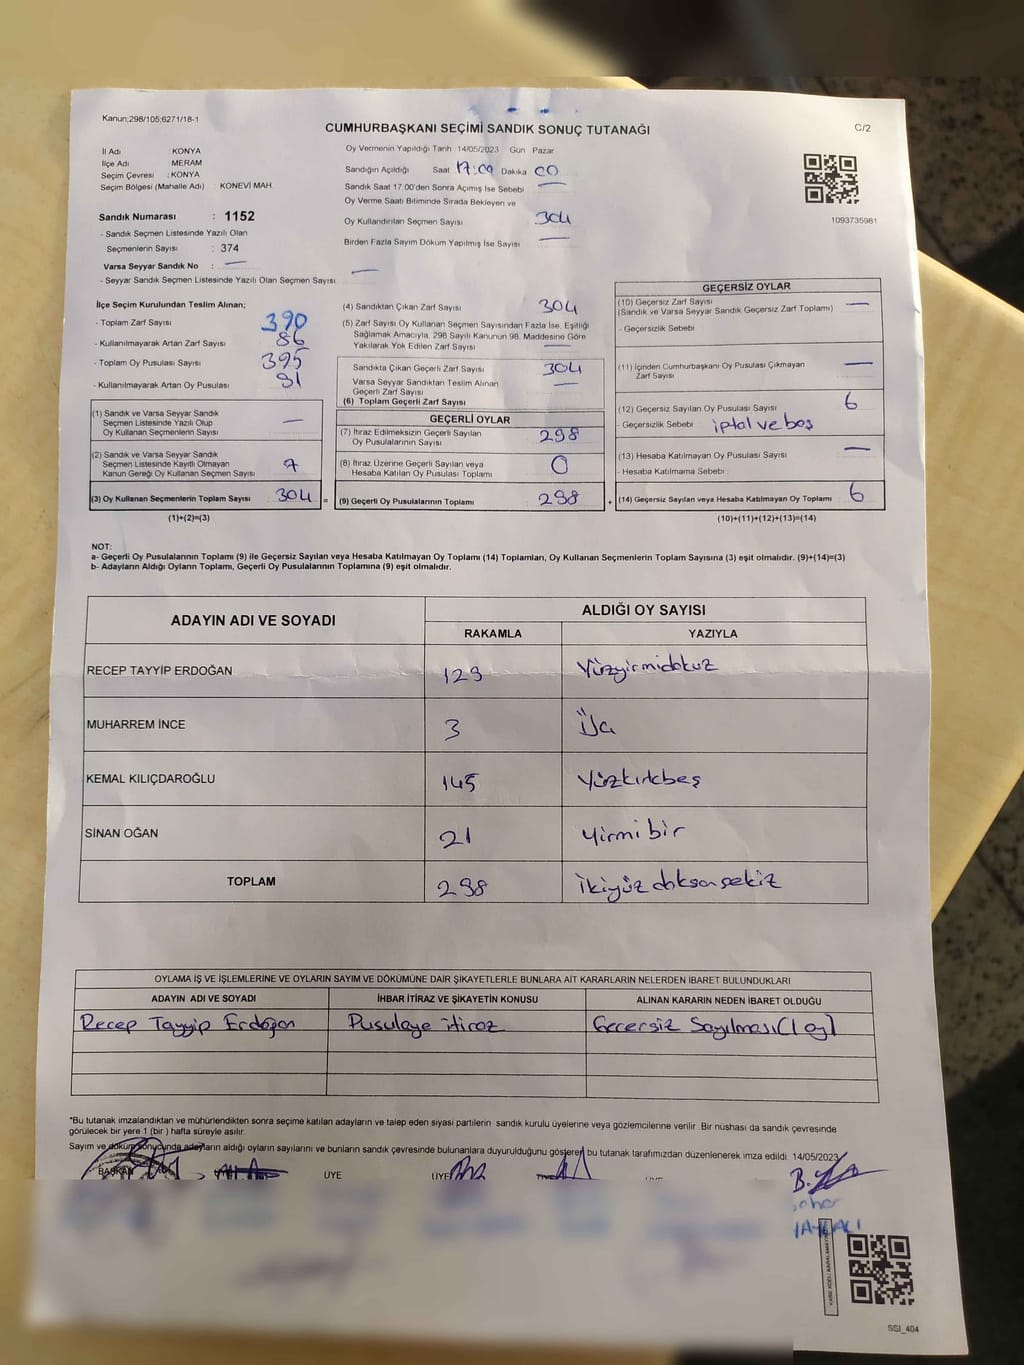 Kanun;298/105;6271/18-1
CUMHURBAŞKANI SEÇİMİ SANDIK SONUÇ TUTANAĞI
C/2
İl Adı : KONYA
İlçe Adı : MERAM
Seçim Çevresi : KONYA
Seçim Bölgesi (Mahalle Adı) : KONEVİ MAH.
Sandık Numarası : 1152
- Sandık Seçmen Listesinde Yazılı Olan
Seçmenlerin Sayısı : 374
Varsa Seyyar Sandık No : —
- Seyyar Sandık Seçmen Listesinde Yazılı Olan Seçmen Sayısı : —
Oy Vermenin Yapıldığı Tarih 14/05/2023 Gün Pazar
Sandığın Açıldığı Saat 17:00 Dakika 00
Sandık Saat 17.00'den Sonra Açımış İse Sebebi —
Oy Verme Saati Bitiminde Sırada Bekleyen ve
Oy Kullandırılan Seçmen Sayısı 304
Birden Fazla Sayım Döküm Yapılmış İse Sayısı —
1093735981
İlçe Seçim Kurulundan Teslim Alınan;
- Toplam Zarf Sayısı 390
- Kullanılmayarak Artan Zarf Sayısı 86
- Toplam Oy Pusulası Sayısı 395
- Kullanılmayarak Artan Oy Pusulası 91
(1) Sandık ve Varsa Seyyar Sandık
Seçmen Listesinde Yazılı Olup
Oy Kullanan Seçmenlerin Sayısı —
(2) Sandık ve Varsa Seyyar Sandık
Seçmen Listesinde Kayıtlı Olmayan
Kanun Gereği Oy Kullanan Seçmen Sayısı 7
(3) Oy Kullanan Seçmenlerin Toplam Sayısı 304 =
(1)+(2)=(3)
(4) Sandıktan Çıkan Zarf Sayısı 304
(5) Zarf Sayısı Oy Kullanan Seçmen Sayısından Fazla İse, Eşitliği
Sağlamak Amacıyla, 298 Sayılı Kanunun 98. Maddesine Göre
Yakılarak Yok Edilen Zarf Sayısı —
Sandıkta Çıkan Geçerli Zarf Sayısı 304
Varsa Seyyar Sandıktan Teslim Alınan
Geçerli Zarf Sayısı —
(6) Toplam Geçerli Zarf Sayısı
GEÇERLİ OYLAR
(7) İtiraz Edilmeksizin Geçerli Sayılan
Oy Pusulalarının Sayısı 298
(8) İtiraz Üzerine Geçerli Sayılan veya
Hesaba Katılan Oy Pusulası Toplamı 0
(9) Geçerli Oy Pusulalarının Toplamı 298 +
GEÇERSİZ OYLAR
(10) Geçersiz Zarf Sayısı
(Sandık ve Varsa Seyyar Sandık Geçersiz Zarf Toplamı) —
- Geçersizlik Sebebi
(11) İçinden Cumhurbaşkanı Oy Pusulası Çıkmayan
Zarf Sayısı —
(12) Geçersiz Sayılan Oy Pusulası Sayısı 6
- Geçersizlik Sebebi iptal ve boş
(13) Hesaba Katılmayan Oy Pusulası Sayısı —
- Hesaba Katılmama Sebebi :
(14) Geçersiz Sayılan veya Hesaba Katılmayan Oy Toplamı 6
(10)+(11)+(12)+(13)=(14)
NOT:
a- Geçerli Oy Pusulalarının Toplamı (9) ile Geçersiz Sayılan veya Hesaba Katılmayan Oy Toplamı (14) Toplamları, Oy Kullanan Seçmenlerin Toplam Sayısına (3) eşit olmalıdır. (9)+(14)=(3)
b- Adayların Aldığı Oyların Toplamı, Geçerli Oy Pusulalarının Toplamına (9) eşit olmalıdır.
ADAYIN ADI VE SOYADI
ALDIĞI OY SAYISI
RAKAMLA YAZIYLA
RECEP TAYYİP ERDOĞAN 129 Yüzyirmidokuz
MUHARREM İNCE 3 Üç
KEMAL KILIÇDAROĞLU 145 Yüzkırkbeş
SİNAN OĞAN 21 Yirmi bir
TOPLAM 298 İkiyüz doksan sekiz
OYLAMA İŞ VE İŞLEMLERİNE VE OYLARIN SAYIM VE DÖKÜMÜNE DAİR ŞİKAYETLERLE BUNLARA AİT KARARLARIN NELERDEN İBARET BULUNDUKLARI
ADAYIN ADI VE SOYADI İHBAR İTİRAZ VE ŞİKAYETİN KONUSU ALINAN KARARIN NEDEN İBARET OLDUĞU
Recep Tayyip Erdoğan Pusulaya itiraz Geçersiz Sayılması (1 oy)
*Bu tutanak imzalandıktan ve mühürlendikten sonra seçime katılan adayların ve talep eden siyasi partilerin sandık kurulu üyelerine veya gözlemcilerine verilir. Bir nüshası da sandık çevresinde
görülecek bir yere 1 (bir) hafta süreyle asılır.
Sayım ve döküm sonucunda adayların aldığı oyların sayılarını ve bunların sandık çevresinde bulunanlara duyurulduğunu gösteren bu tutanak tarafımızdan düzenlenerek imza edildi. 14/05/2023
BAŞKAN ÜYE ÜYE
SSI_404